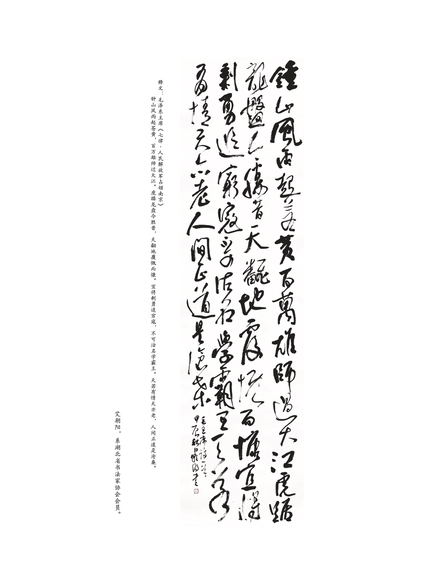 鍾山風雨起蒼黄百萬雄師過大江虎踞
龍盤今勝昔天翻地覆慨而慷宜將
剩勇追窮寇不可沽名學霸王天若
有情天亦老人間正道是滄桑
毛主席詩一首
释文：毛泽东主席《七律·人民解放军占领南京》
钟山风雨起苍黄，百万雄师过大江。虎踞龙盘今胜昔，天翻地覆慨而慷。宜将剩勇追穷寇，不可沽名学霸王。天若有情天亦老，人间正道是沧桑。
艾朝阳，系湖北省书法家协会会员。